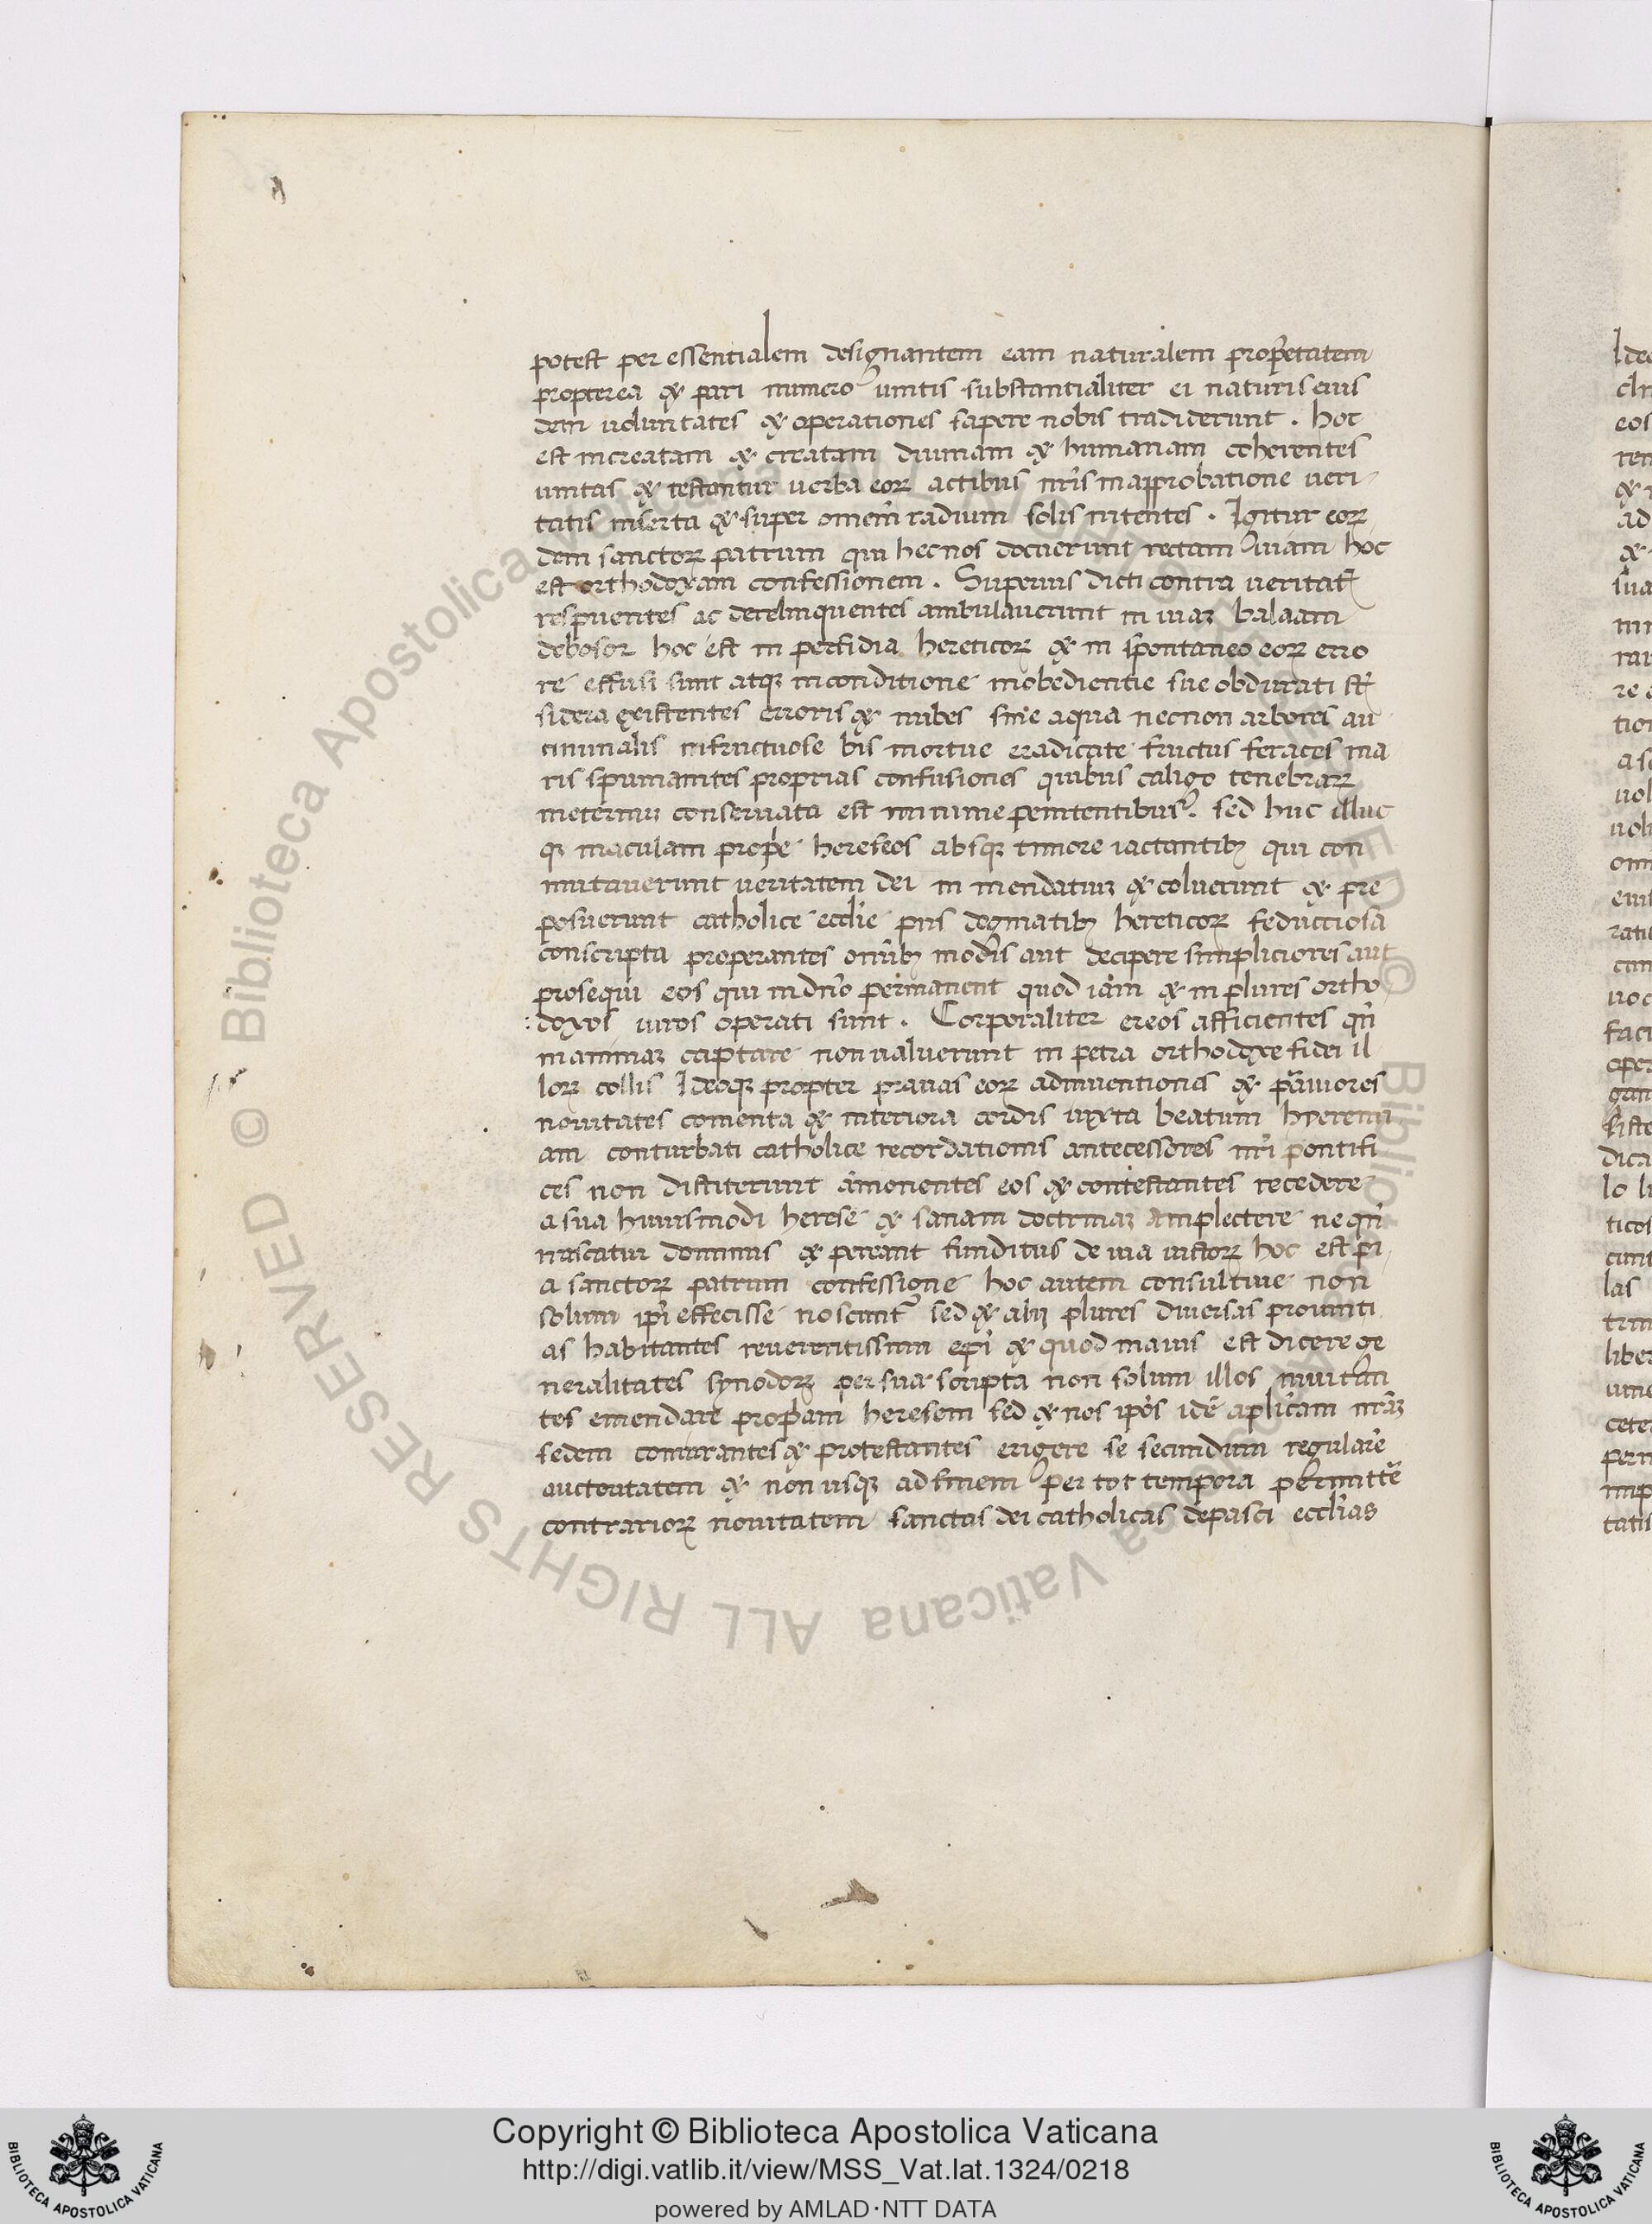 potest per essentialem designantem eam naturalem prop̄etatem
propterea & pari numero unitis substantialiter ei naturis eius
dem uoluntates & operationes sapere nobis tradiderunt . hoc
est increatam & creatam diuinam & humanam coherentes
unitas & testantur uerba eoꝝ actibus nr̄is inapprobatione ueri
tatis inserta & super omem̄ radium solis nitentes . Igitur eoꝝ
dem sanctoꝝ patrum qui hec nos docuerunt rectam uiam hoc
est orthodoxam confessionem . Superius dicti contra ueritat̄
respuentes ac derelinquentes ambulauerunt in uiaꝫ balaam
debosor hoc est in perfidia hereticoꝝ & in spontaneo eoꝝ erro
re effusi sunt atqꝫ inconditione inobedientie sue obdurati st̄
sidera existentes erroris & nubes sine aqua necnon arbores au
tinunalis infructuose bis mortue eradicate fructus feraces ma
ris spumantes proprias confusiones quibus caligo tenebraꝝ
ineternuꝫ conseruata est minime penitentibus . sed huc illuc
qꝫ maculam prop̄e hereseos absqꝫ timore iactantibꝫ qui con
mutauerunt ueritatem dei in mendatiuꝫ & coluerunt & pre
posuerunt catholice eccl̄ie piis dogmatibꝫ hereticoꝝ seductiosa
conscripta properantes om̄ibꝫ modis aut decipere simpliciores aut
prosequi eos qui in dn̄o permanent quod iam & in plures ortho
: doxos uiros operati sunt . Corporaliter ereos afficientes qn̄
manimaꝫ captare non ualuerunt in petra orthodoxe fidei il
loꝝ collis Ideoqꝫ propter prauas eoꝝ adinuentiones & p̄auiores
nouitates comenta & interiora cordis iuxta beatum hyeremi
am conturbati catholice recordationis antecessores nr̄i pontifi
ces non distiterunt āmonentes eos & contestantes recedere
a sua huiusmodi herese & sanam doctrinaꝫ amplectere ne qn̄
nascatur dominus & pereant funditus de uia iustoꝝ hoc est p̄i
a sanctoꝝ patrum confessione hoc autem consultiue non
solum ip̄i effecisse noscunt̄ sed & alij plures diuersas prouinti
as habitantes reuerentissimi ep̄i & quod maius est dicere ge
neralitates synodoꝝ per sua scripta non solum illos inuitan
tes emendare prop̄am heresem sed & nos ip̄os idē aplicam nr̄aꝫ
sedem coniurantes & protestantes erigere se secundum regulare
auctoritatem & non usqꝫ ad finem per tot tempora permittē
contrarioꝝ nouitatem sanctas dei catholicas depasci eccl̄ias
Copyright © Biblioteca Apostolica Vaticana
http://digi.vatlib.it/view/MSS_Vat.lat.1324/0218
powered by AMLAD·NTT DATA